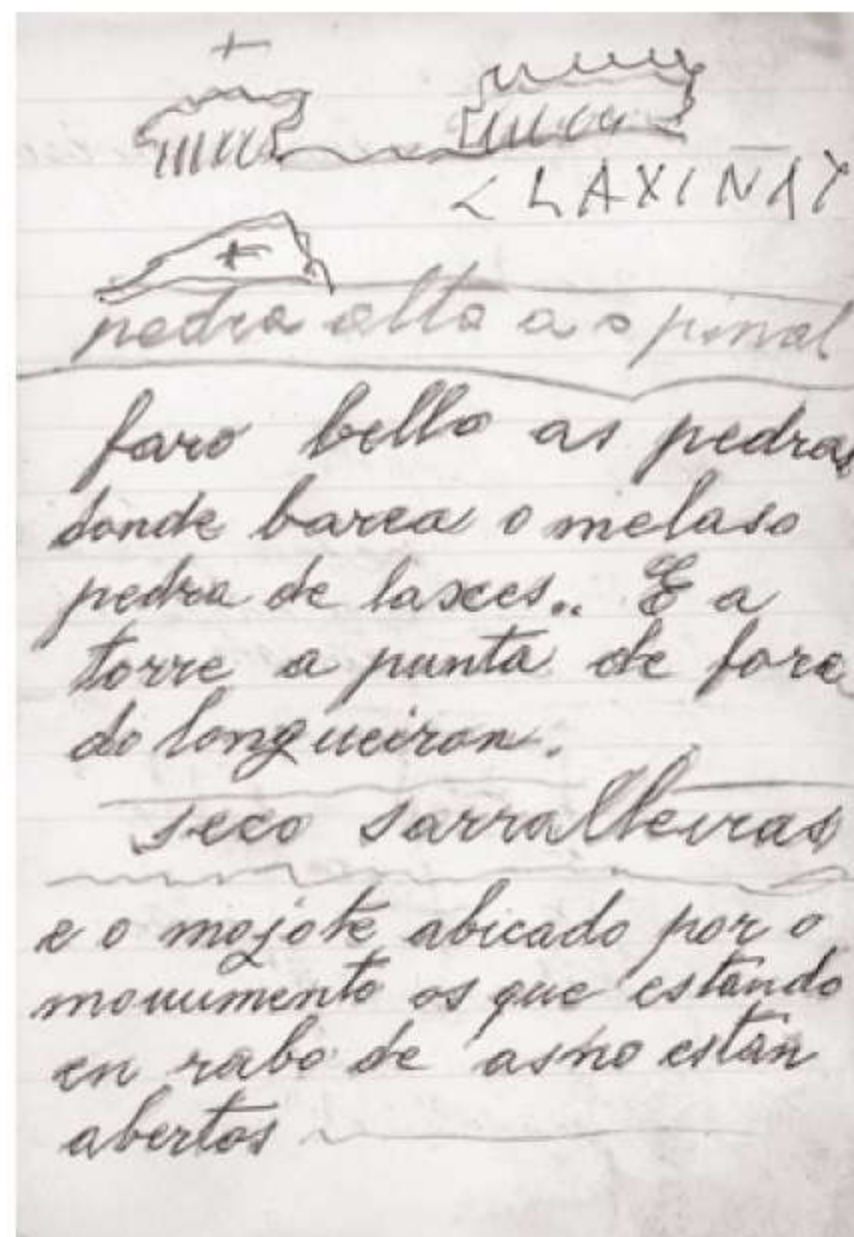 < LAXIÑAY
pedra alta a o pinal
faro bello as pedras
donde barca o melaso
pedra de laxces.. E a
torre a punta de fora
do longueiron.
seco sarralleiras
e o mojote abicado por o
monumento os que estando
en rabo de asno están
abertos